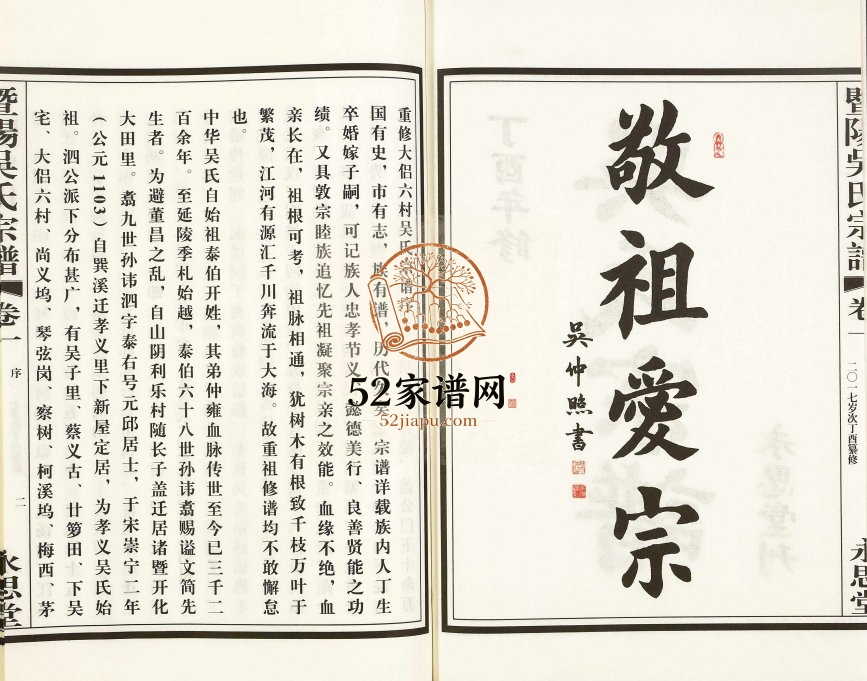 敬祖愛宗
吴仲照書
暨陽吴氏宗譜
卷一
二〇一七岁次丁酉纂修
永思堂
重修大侣六村吴氏 谱序
国有史，市有志，族有谱，历代 矣 宗谱详载族内人丁生
卒婚嫁子嗣，可记族人忠孝节义、懿德美行、良善贤能之功
绩。又具敦宗睦族追忆先祖凝聚宗亲之效能。血缘不绝，血
亲长在，祖根可考，祖脉相通，犹树木有根致千枝万叶于
繁茂，江河有源汇千川奔流于大海。故重祖修谱均不敢懈怠
也。
中华吴氏自始祖泰伯开姓，其弟仲雍血脉传世至今已三千二
百余年。至延陵季札始越，泰伯六十八世孙讳翥赐谥文简先
生者。为避董昌之乱，自山阴利乐村随长子盖迁居诸暨开化
大田里。翥九世孙讳泗字泰右号元邱居士，于宋崇宁二年
（公元1103）自巽溪迁孝义里下新屋定居，为孝义吴氏始
祖。泗公派下分布甚广，有吴子里、蔡义古、廿箩田、下吴
宅、大侣六村、尚义坞、琴弦岗、察树、柯溪坞、梅西、茅
暨陽吴氏宗譜
卷一
序
二
永思堂
52家谱网
52jiapu.com